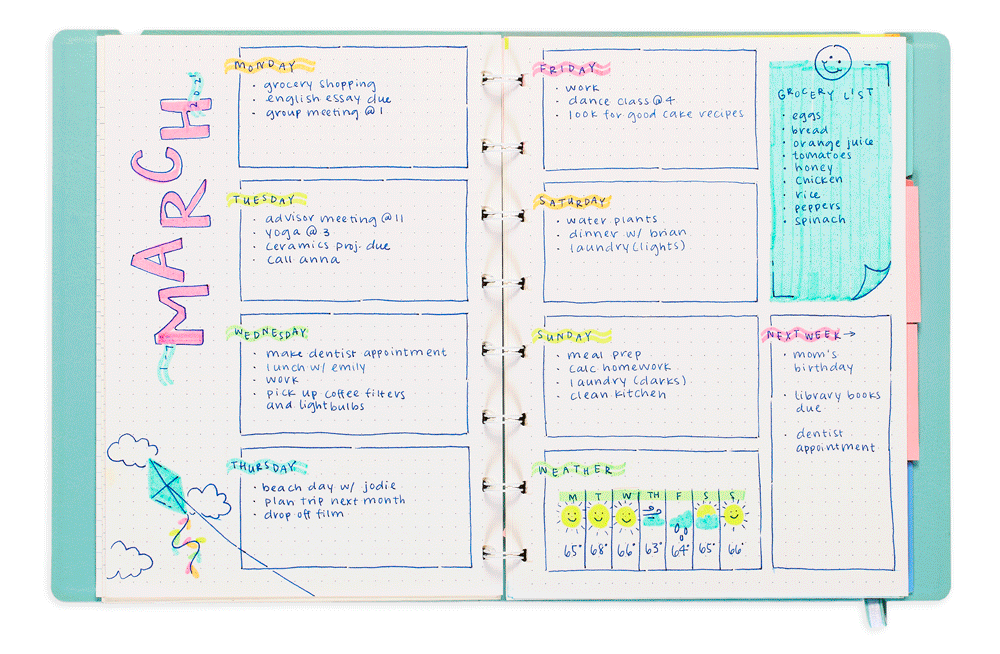 MARCH
2021
MONDAY
• grocery shopping
• english essay due
• group meeting @ 1
TUESDAY
• advisor meeting @ 11
• yoga @ 3
• ceramics proj. due
• call anna
WEDNESDAY
• make dentist appointment
• lunch w/ emily
• work
• pick up coffee filters
and lightbulbs
THURSDAY
• beach day w/ jodie
• plan trip next month
• drop off film
FRIDAY
• work
• dance class @ 4
• look for good cake recipes
SATURDAY
• water plants
• dinner w/ brian
• laundry (lights)
SUNDAY
• meal prep
• calc homework
• laundry (darks)
• clean kitchen
WEATHER
M T W TH F S S
65° 68° 66° 63° 64° 65° 66°
GROCERY LIST
• eggs
• bread
• orange juice
• tomatoes
• honey
• chicken
• rice
• peppers
• spinach
NEXT WEEK →
• mom's
birthday
• library books
due
• dentist
appointment